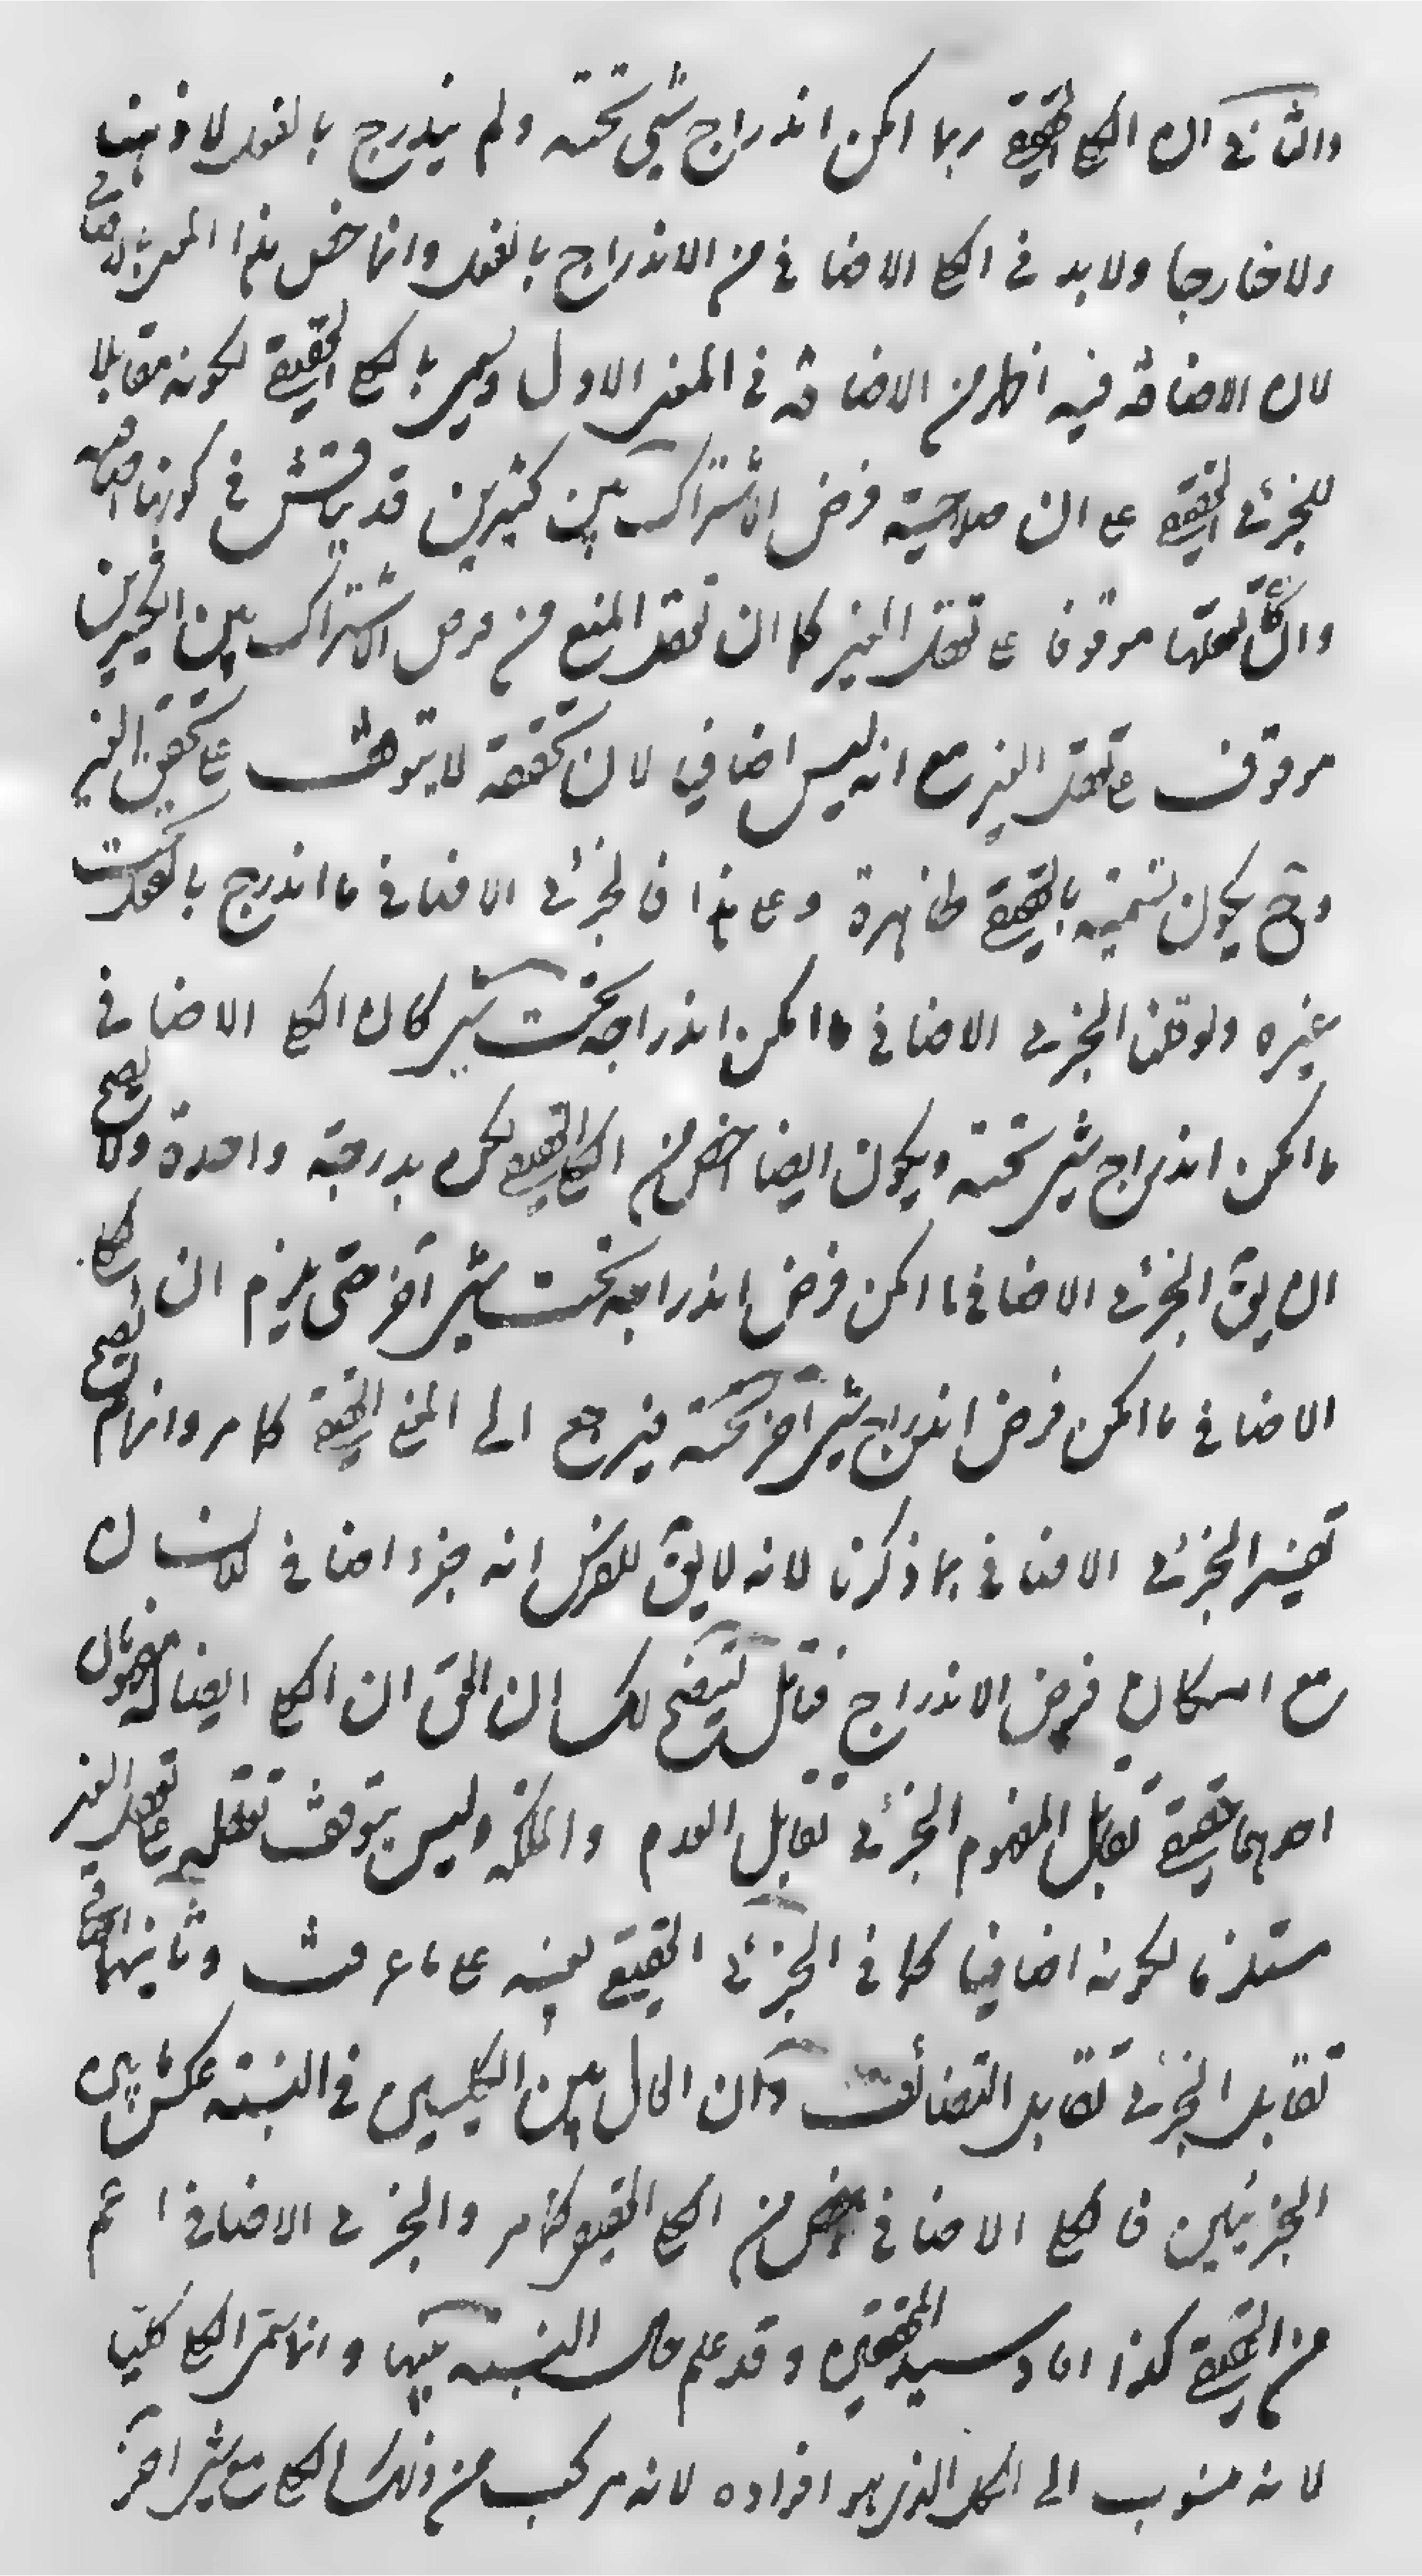 والثاني ان الكلي الحقيقي ربما امكن اندراج شيء تحته ولم يندرج بالفعل لا ذهنا
ولا خارجا ولا بد في الكلي الاضافي من الاندراج بالفعل وانما خص هذا المعنى بالاضافي
لان الاضافة فيه اظهر من الاضافة في المعنى الاول وسمي بالكلي الحقيقي لكونه مقابلا
للجزئي الحقيقي على ان صلاحية فرض الاشتراك بين كثيرين قد يناقش في كونها اضافة
وان كان تعقلها موقوفا على تعقل الغير كما ان تعقل المنع من فرض الاشتراك بين الكثيرين
موقوف على تعقل الغير مع انه ليس اضافيا لان تحققه لا يتوقف على تحقق الغير
وح يكون تسميته بالحقيقي ظاهرة وعلى هذا فالجزئي الاضافي ما اندرج بالفعل تحت
غيره ولو قلنا الجزئي الاضافي ما امكن اندراجه تحت شيء كان الكلي الاضافي
ما امكن اندراج شيء تحته ويكون ايضا اخص من الكلي الحقيقي لكن بدرجة واحدة ولا يصح
ان يق الجزئي الاضافي ما امكن فرض اندراجه تحت شيء آخر حتى يلزم ان الكلي
الاضافي ما امكن فرض اندراج شيء آخر تحته فيرجع الى المعنى الحقيقي كما مر وانما لم يصح
تفسير الجزئي الاضافي بما ذكرنا لانه لا يق للفرس انه جزء اضافي للانسان
مع امكان فرض الاندراج فتامل يتضح لك ان الحق ان الكلي ايضا له مفهومان
احدهما حقيقي تقابل المفهوم الجزئي تقابل العدم والملكة وليس يتوقف تعقله على تعقل الغير
مستلزما لكونه اضافيا كما في الجزئي الحقيقي بعينه على ما عرفت وثانيهما اضافي
تقابل الجزئي تقابل التضائف وان الحال بين الكليين في النسبة عكس بين
الجزئيين فالكلي الاضافي اخص من الكلي الحقيقي كما مر والجزئي الاضافي اعم
من الحقيقي كذا افاد سيد المحققين وقد علم حال النسبة بينهما وانما سمي الكلي كليا
لانه منسوب الى الكل الذي هو افراده لانه مركب من ذلك الكلي مع شيء آخر